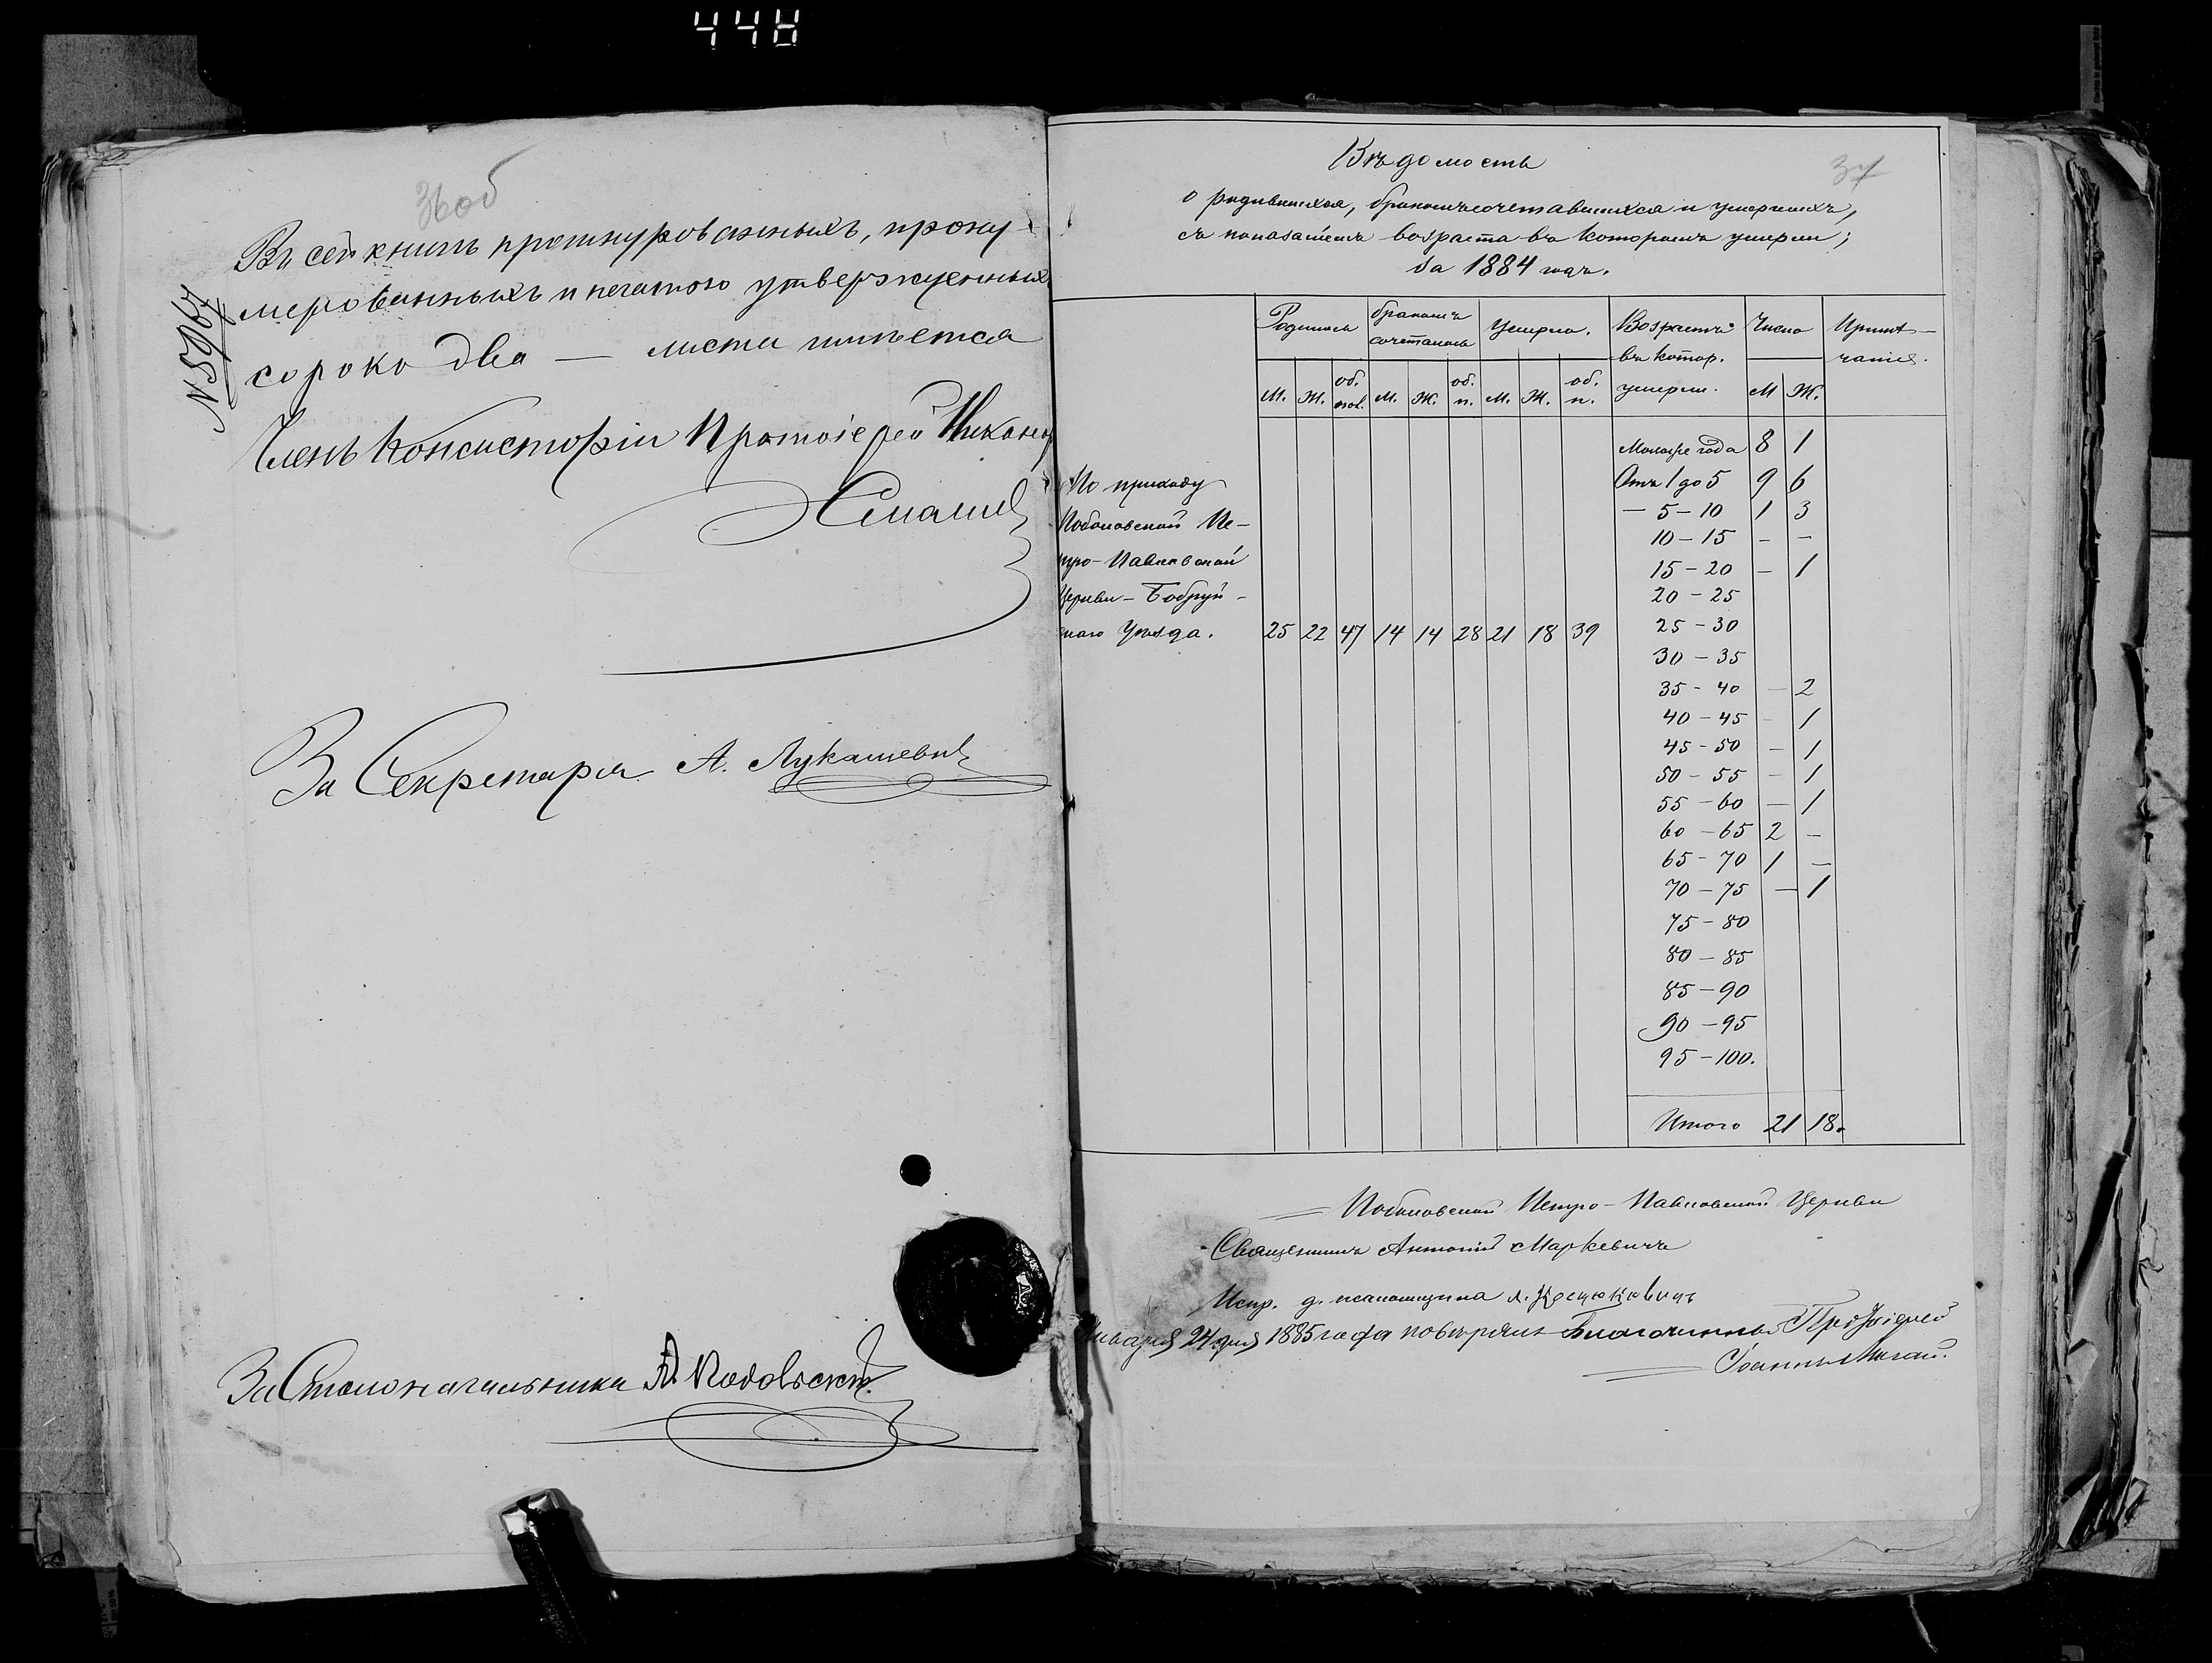 448
36об
Въ сей книгѣ прошнурованныхъ, прону-
мерованныхъ и печатью утвержденныхъ
сорокъ два — листа имѣется
№ 5967
Членъ Консисторіи Протоіерей Никаноръ
Смоличъ
За Секретаря А. Лукашевичъ
За Столоначальника
37
Вѣдомость
о родившихся, бракомъ сочетавшихся и умершихъ,
съ показаніемъ возраста въ которомъ умерли;
за 1884 годъ.
Родились бракомъ сочетались Умерло. Возрастъ въ котор. умерли. Число Примѣ-чаніе.
М. Ж. об. пол. М. Ж. об. п. М. Ж. об. п. М Ж.
Моложе года 8 1
По приходу Отъ 1 до 5 9 6
Побоковской Пе- — 5 – 10 1 3
10 – 15 – –
тро-Павловской 15 – 20 – 1
Церкви – Бобруй- 20 – 25
скаго Уѣзда. 25 22 47 14 14 28 21 18 39 25 – 30
30 – 35
35 – 40 – 2
40 – 45 – 1
45 – 50 – 1
50 – 55 – 1
55 – 60 – 1
60 – 65 2 –
65 – 70 1 –
70 – 75 – 1
75 – 80
80 – 85
85 – 90
90 – 95
95 – 100.
Итого 21 18.
Побоковской Петро-Павловской Церкви
Священникъ Антоній Маркевичъ
Испр. д. псаломщика
Января 24 дня 1885 года повѣрялъ Благочинный Протоіерей
Іоаннъ